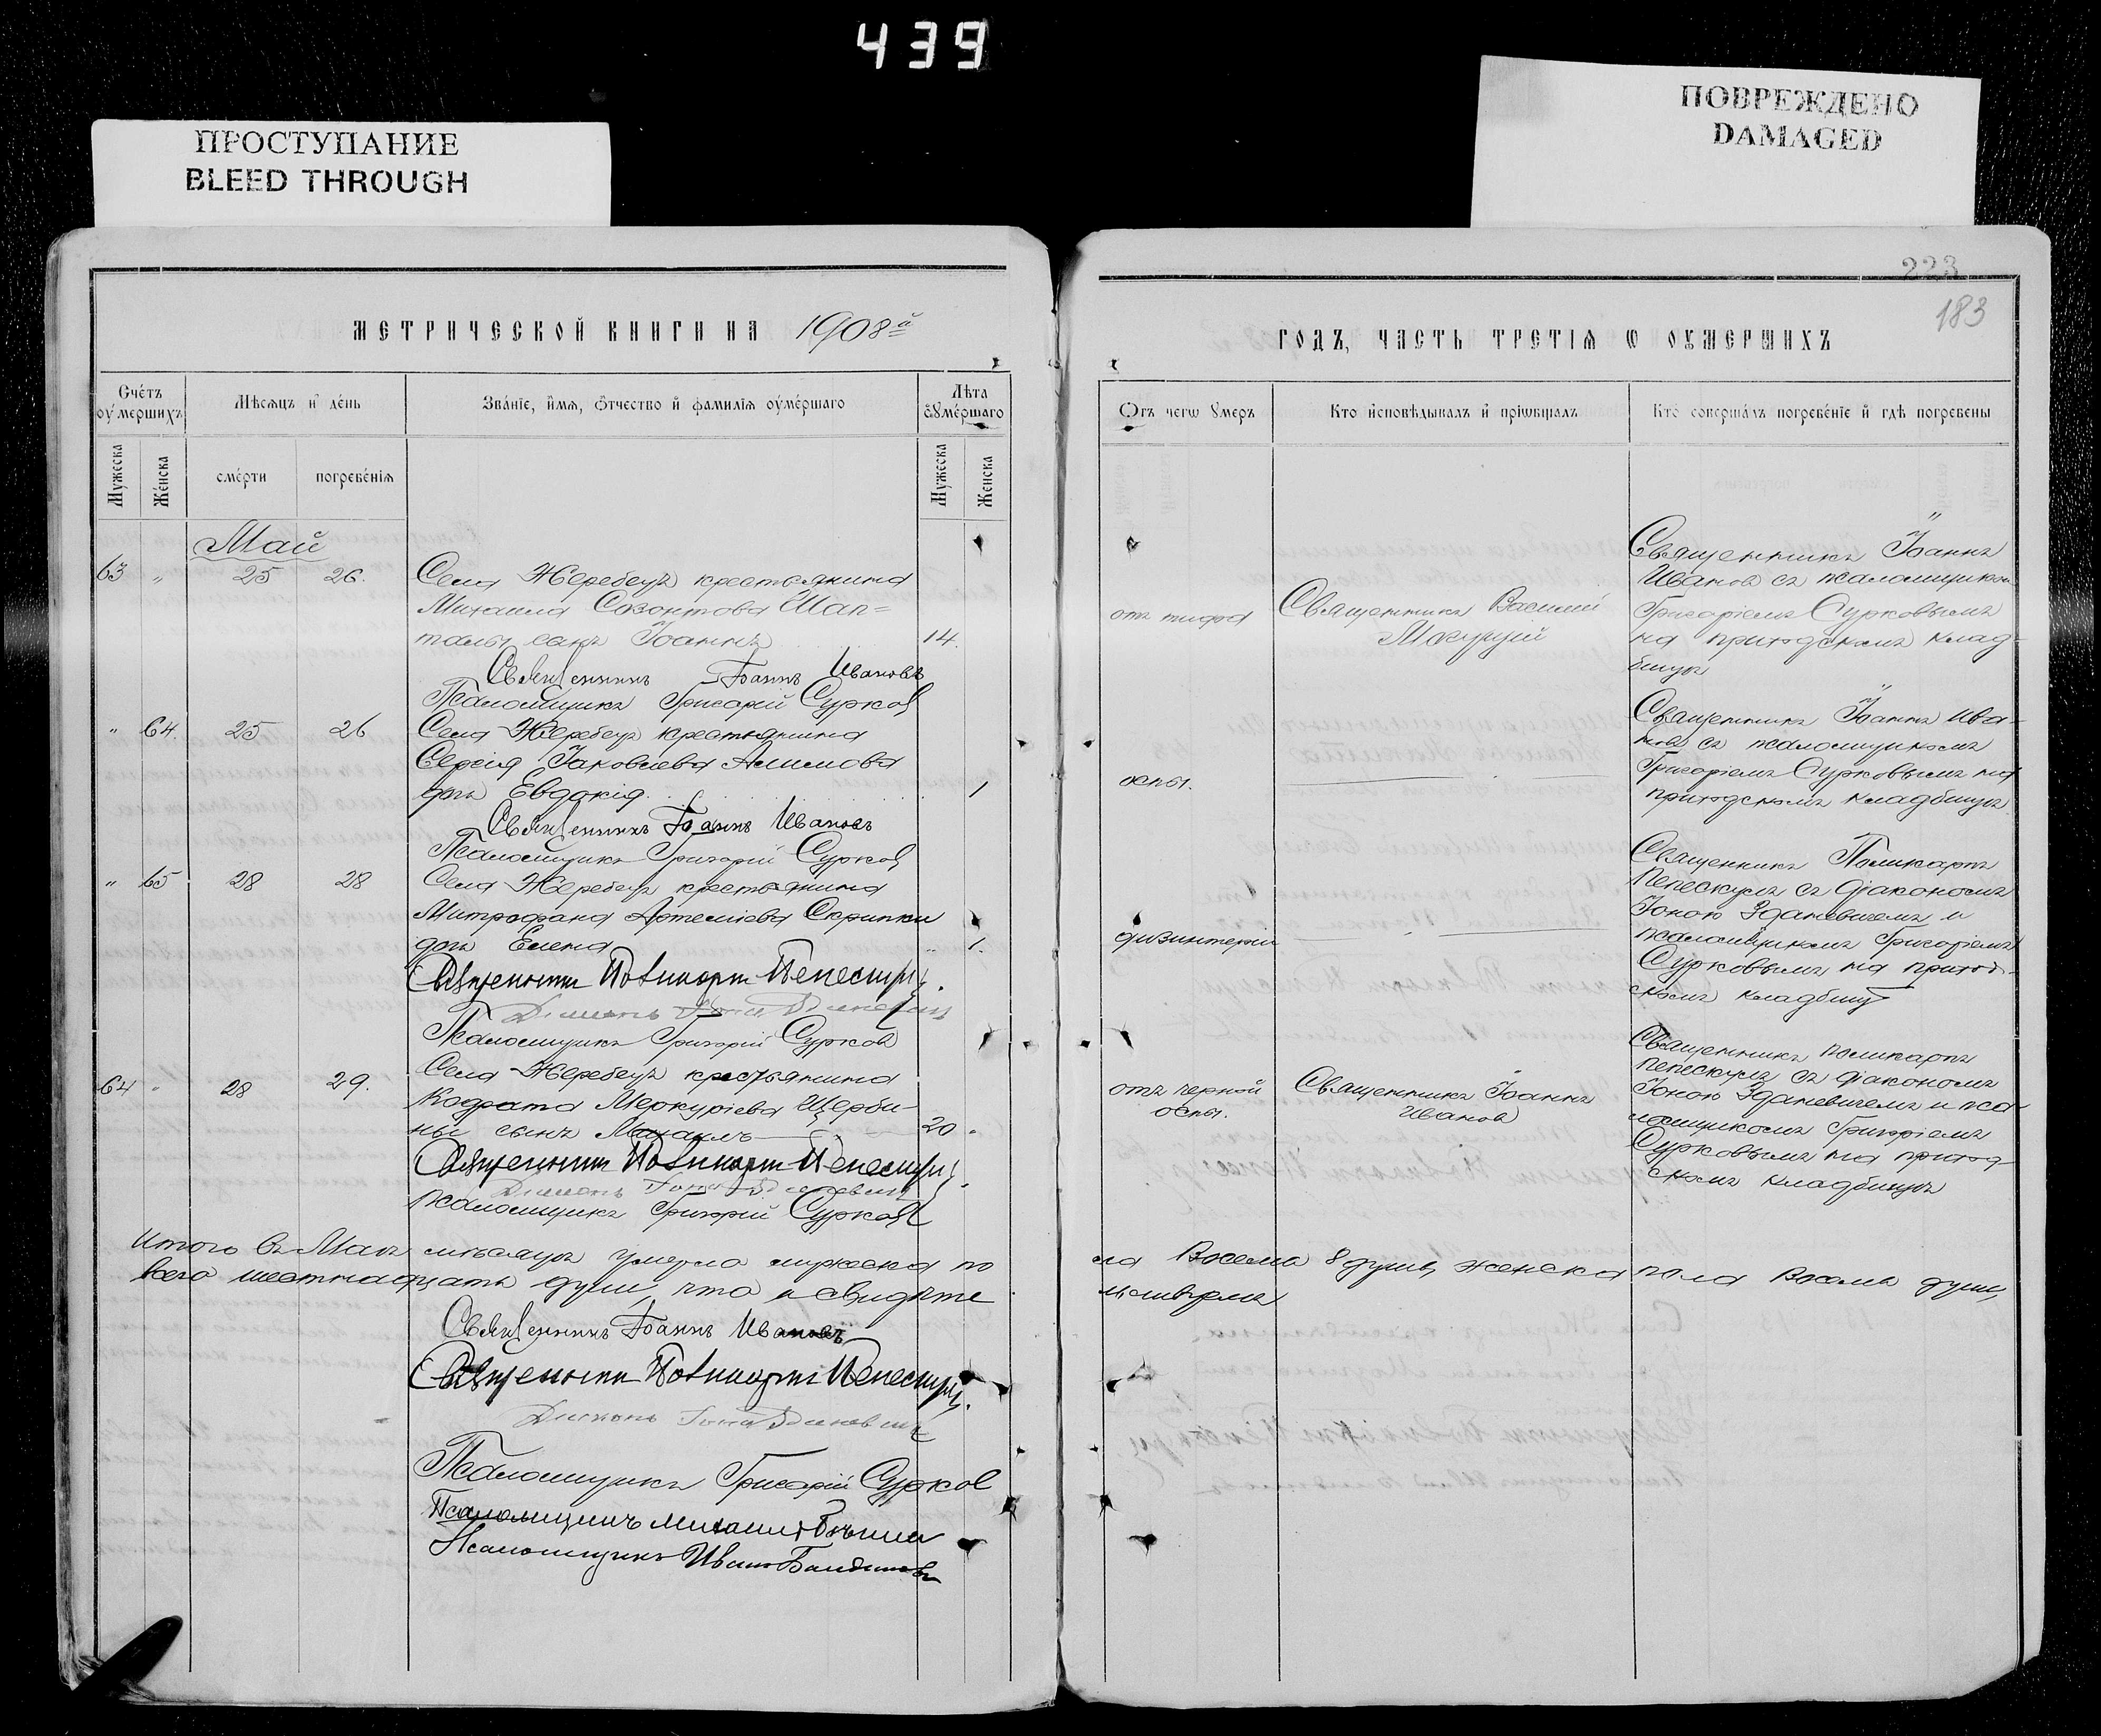 439
ПРОСТУПАНИЕ
BLEED THROUGH
ПОВРЕЖДЕНО
DAMAGED
223
183
МЕТРИЧЕСКОЙ КНИГИ НА 1908й
ГОДЪ, ЧАСТЬ ТРЕТІЯ Ѡ ОУМЕРШИХЪ
Счётъ оумершихъ
Мѣсяцъ и день
Званіе, имя, ѿчество и фамилія оумершаго
Лѣта оумершаго
Мужеска
Женска
смерти
погребенія
Мужеска
Женска
Отъ чегѡ умеръ
Кто исповѣдывалъ и пріѡбщалъ
Кто совершалъ погребеніе и гдѣ погребены
Май
63 " 25 26.
Села Жеребецъ крестьянина
Михаила Созонтова Шап=
талы сынъ Іоаннъ 14.
Священникъ Іоаннъ Ивановъ
Псаломщикъ Григорій Сурков
отъ тифа
Священникъ Василий
Мацуций
Священникъ Іоаннъ
Иванов съ псаломщиком
Григоріемъ Сурковымъ
на приходскомъ клад-
бищѣ
" 64. 25 26
Села Жеребецъ крестьянина
Сергія Іаковлева Алимова
дочь Евдокія 1
Священникъ Іоаннъ Ивановъ
Псаломщикъ Григорій Сурков
оспы.
Священникъ Іоаннъ Ива-
нов съ псаломщикомъ
Григоріемъ Сурковымъ на
приходскомъ кладбищѣ
" 65 28 28
Села Жеребецъ крестьянина
Митрофана Артеміева Скрипки
дочь Елена " 1.
Священникъ Поликарпъ Пепескулъ.
Діаконъ Іона Зданевичъ
Псаломщикъ Григорій Сурков
дизинтеріи
Священникъ Поликарпъ
Пепескулъ съ діакономъ
Іоною Зданевичемъ и
псаломщикомъ Григоріемъ
Сурковымъ на приход-
скомъ кладбищѣ
64 " 28 29.
Села Жеребецъ крестьянина
Кодрата Меркуріева Щерби-
ны сынъ Михаилъ 20.
Священникъ Поликарпъ Пепескулъ.
Діаконъ Іона Зданевичъ
Псаломщикъ Григорій Сурков
отъ черной
оспы.
Священникъ Іоаннъ
Иванов
Священникъ Поликарпъ
Пепескулъ съ діакономъ
Іоною Зданевичемъ и пса-
ломщикомъ Григоріемъ
Сурковымъ на приход-
скомъ кладбищѣ
Итого въ Маѣ мѣсяцѣ умерло мужска по
ла Восемь 8 душъ, женска пола Восемь душъ,
всего шестнадцать душъ, что и свидѣте
льствуемъ
Священникъ Іоаннъ Ивановъ
Священникъ Поликарпъ Пепескулъ.
Діаконъ Іона Зданевичъ
Псаломщикъ Григорій Сурков
Псаломщикъ Михаилъ
Псаломщикъ Иванъ